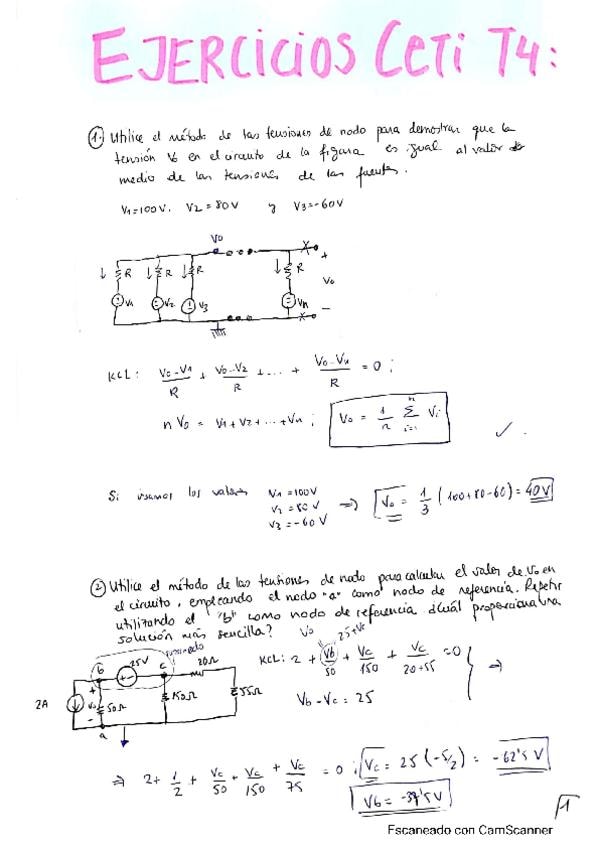 EJERCICIOS CeTi T4:
1. Utilice el método de las tensiones de nodo para demostrar que la
tensión Vo en el circuito de la figura es igual al valor
medio de las tensiones de las fuentes.
V1=100V. V2=80V y V3=-60V
Vo
R R R R + Vo -
V1 V2 V3 Vn
KCL: (Vo-V1)/R + (Vo-V2)/R + ... + (Vo-Vn)/R = 0;
n Vo = V1+V2+...+Vn; Vo = 1/n Σ Vi
n
i=1
Si usamos los valores V1=100V
V2=80V
V3=-60V
=> Vo = 1/3 (100+80-60) = 40V
2 Utilice el método de las tensiones de nodo para calcular el valor de Vo en
el circuito, empleando el nodo "a" como nodo de referencia. Repetir
utilizando el "b" como nodo de referencia ¿Cuál proporciona una
solución más sencilla?
Vo 25+Vc
b 25V c 20Ω
KCL: 2 + Vb/50 + Vc/150 + Vc/(20+55) = 0
=>
Vb-Vc = 25
2A + Vo - 50Ω 150Ω 55Ω
a
=> 2 + 1/2 + Vc/50 + Vc/150 + Vc/75 = 0; Vc = 25 (-5/2) = -62'5 V
Vb = -37'5V
1
Escaneado con CamScanner